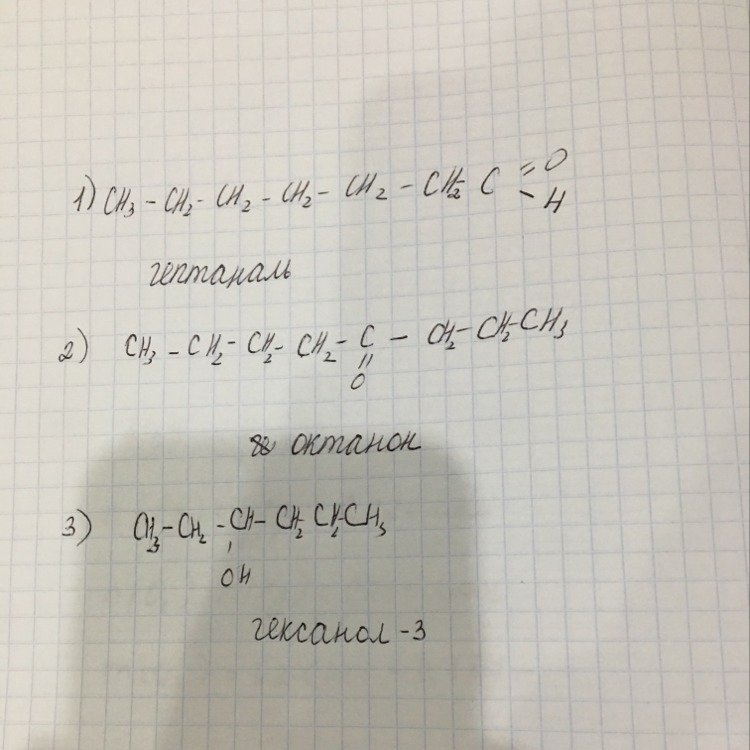 1) CH₃ - CH₂ - CH₂ - CH₂ - CH₂ - CH₂ C =O
- H
гептаналь
2) CH₃ - CH₂ - CH₂ - CH₂ - C - CH₂ - CH₂ - CH₃
=
O
октанон
3) CH₃ - CH₂ - CH - CH₂ CH₂ - CH₃
OH
гексанол - 3